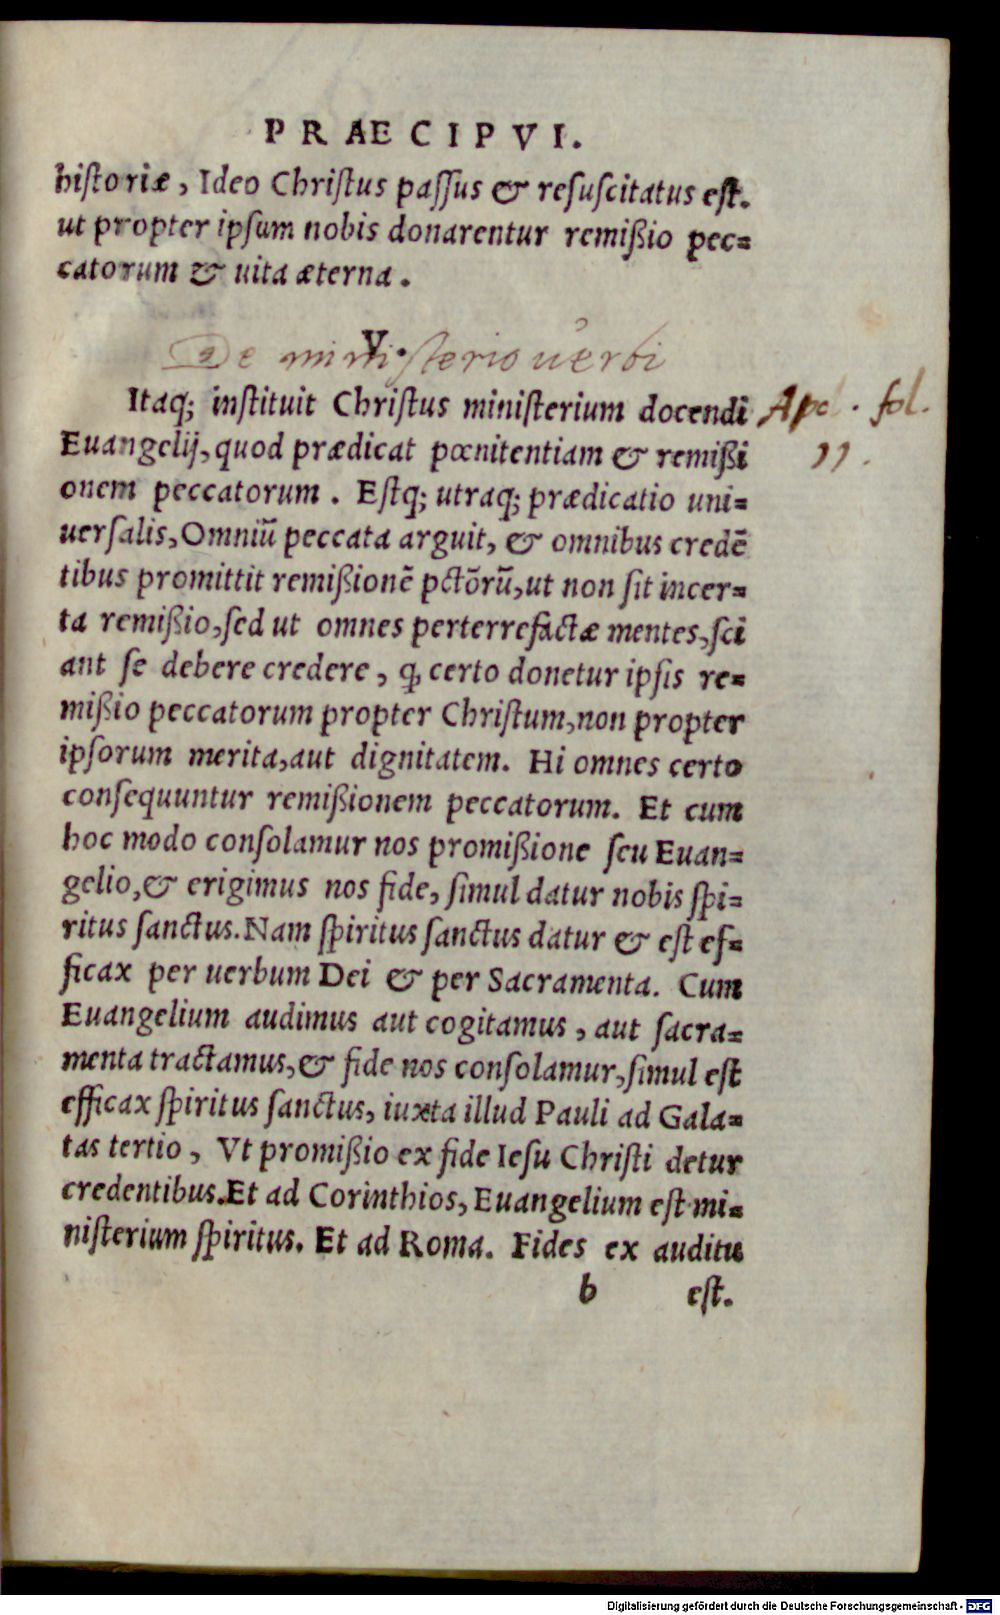 PRAECIPVI.
hiſtoriæ, Ideo Chriſtus paſſus & reſuſcitatus eſt.
ut propter ipſum nobis donarentur remißio pec=
catorum & uita æterna.
V.
De miniſterio uerbi
Itaq; inſtituit Chriſtus miniſterium docendi
Apol. fol.
Euangelij, quod prædicat pœnitentiam & remißi
11.
onem peccatorum. Eſtq; utraq; prædicatio uni=
uerſalis, Omniũ peccata arguit, & omnibus credẽ
tibus promittit remißionẽ pctõrũ, ut non ſit incer=
ta remißio, ſed ut omnes perterrefactæ mentes, ſci
ant ſe debere credere, ꝙ certo donetur ipſis re=
mißio peccatorum propter Chriſtum, non propter
ipſorum merita, aut dignitatem. Hi omnes certo
conſequuntur remißionem peccatorum. Et cum
hoc modo conſolamur nos promißione ſeu Euan=
gelio, & erigimus nos fide, ſimul datur nobis ſpi=
ritus ſanctus. Nam ſpiritus ſanctus datur & eſt ef=
ficax per uerbum Dei & per Sacramenta. Cum
Euangelium audimus aut cogitamus, aut ſacra=
menta tractamus, & fide nos conſolamur, ſimul eſt
efficax ſpiritus ſanctus, iuxta illud Pauli ad Gala=
tas tertio, Vt promißio ex fide Ieſu Chriſti detur
credentibus. Et ad Corinthios, Euangelium eſt mi=
niſterium ſpiritus. Et ad Roma. Fides ex auditu
b eſt.
Digitalisierung gefördert durch die Deutsche Forschungsgemeinschaft - DFG